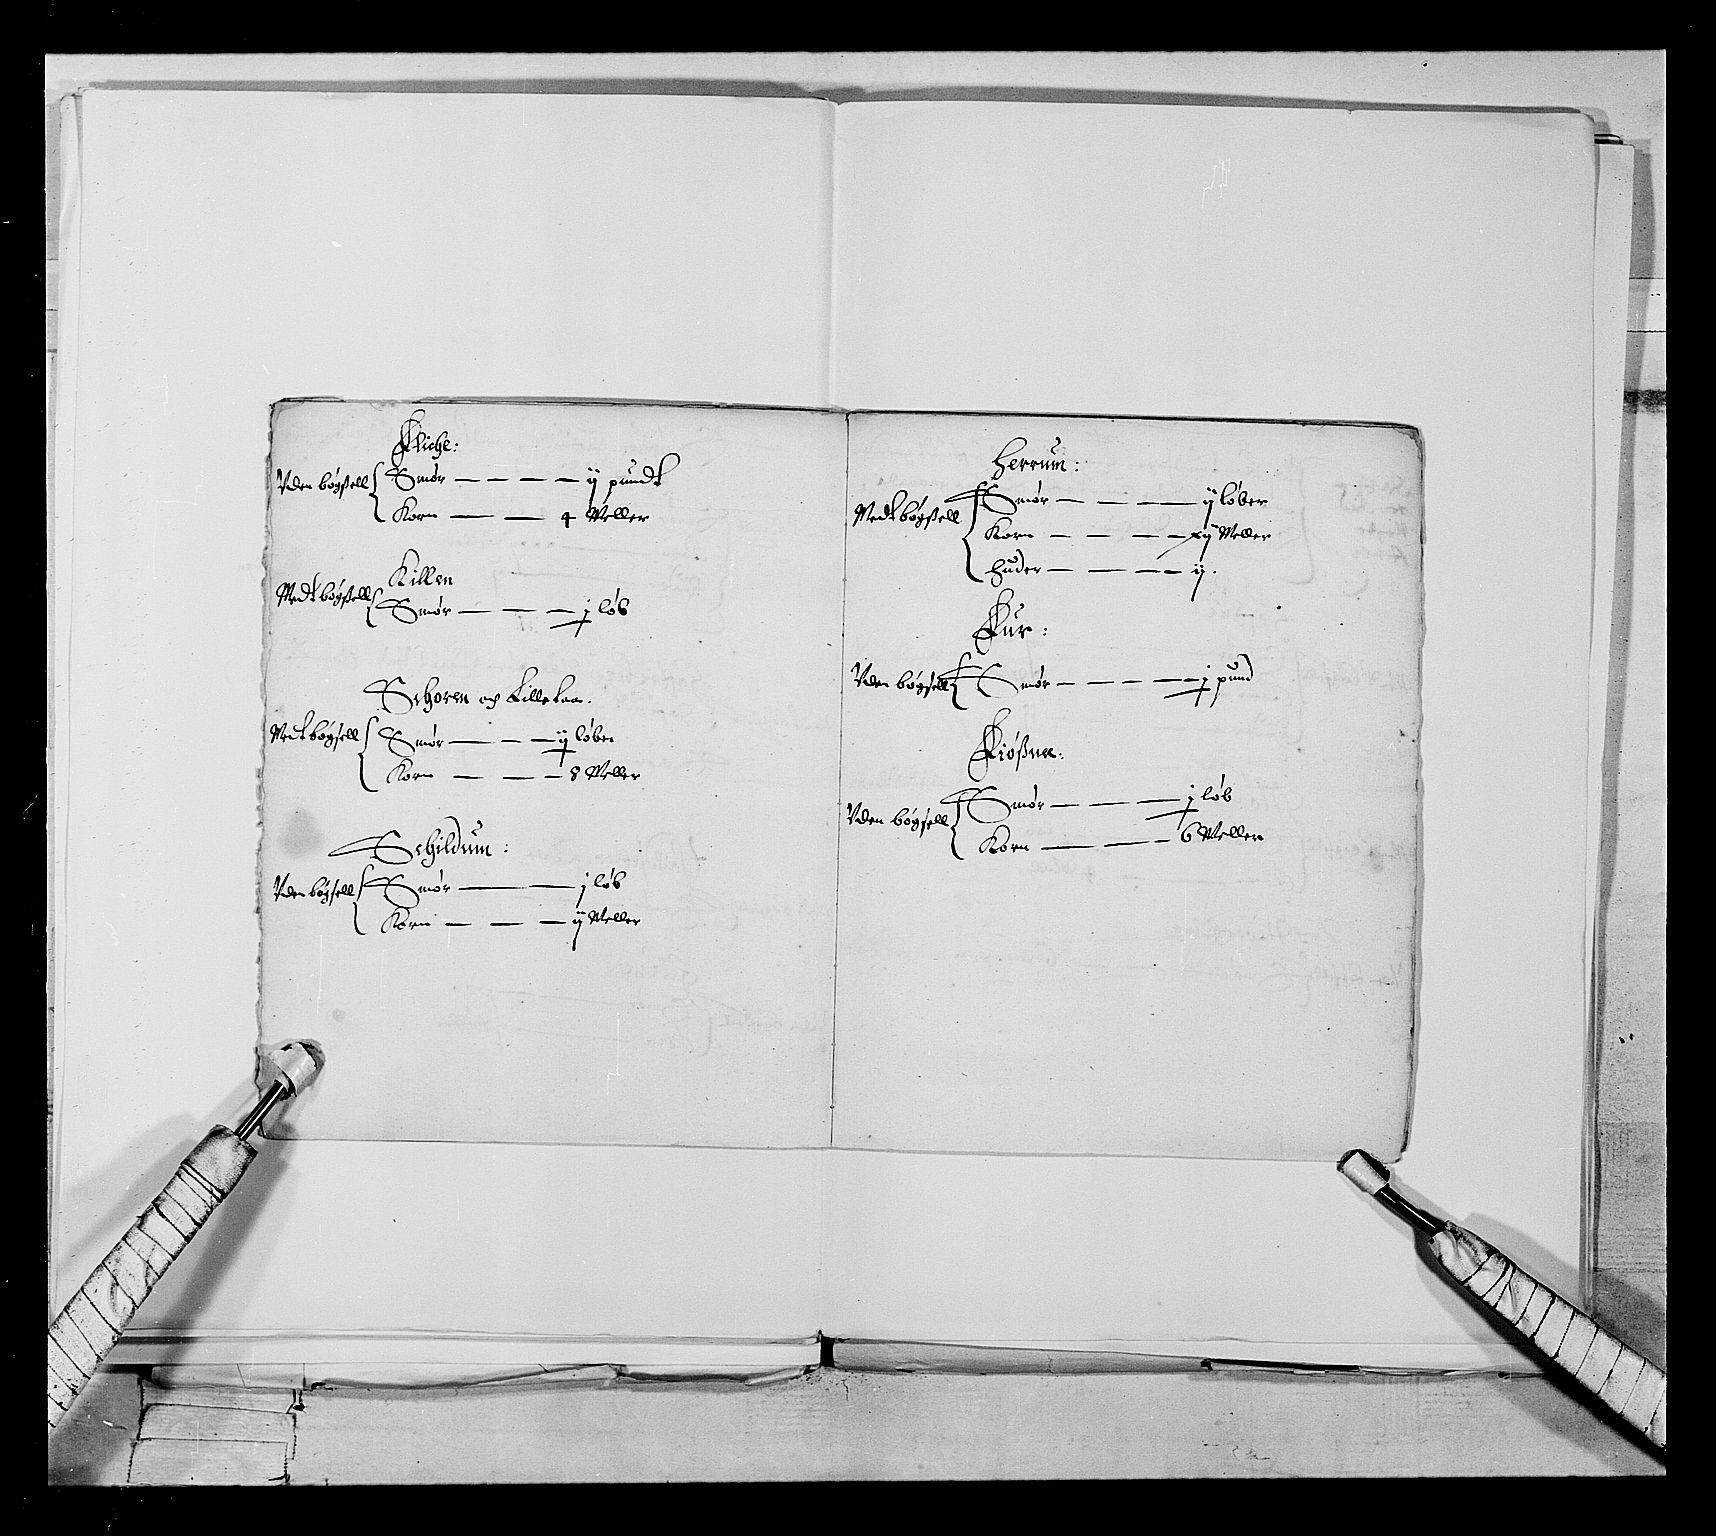 Fliche:
Vden bøgßell Smør — — — — ij pundt
Korn — — 4 Meller
Killen
Medt bøgßell Smør — — — j løb
Schoren och Lille
Medt bøgsell Smør — — — ij løber
Korn — — — 8 Meller
Schildum:
Vden bøgsell Smør — — j løb
Korn — — — ij Meller
Herrum:
Medt bøgßell Smør — — — ij løber
Korn — — — — xij Meller
Huder — — — — ij.
Fur:
Vden bøgsell Smør — — — — j pund
Fiößne:
Vden bøgsell Smør — — — — j løb
Korn — — — 6 Meller